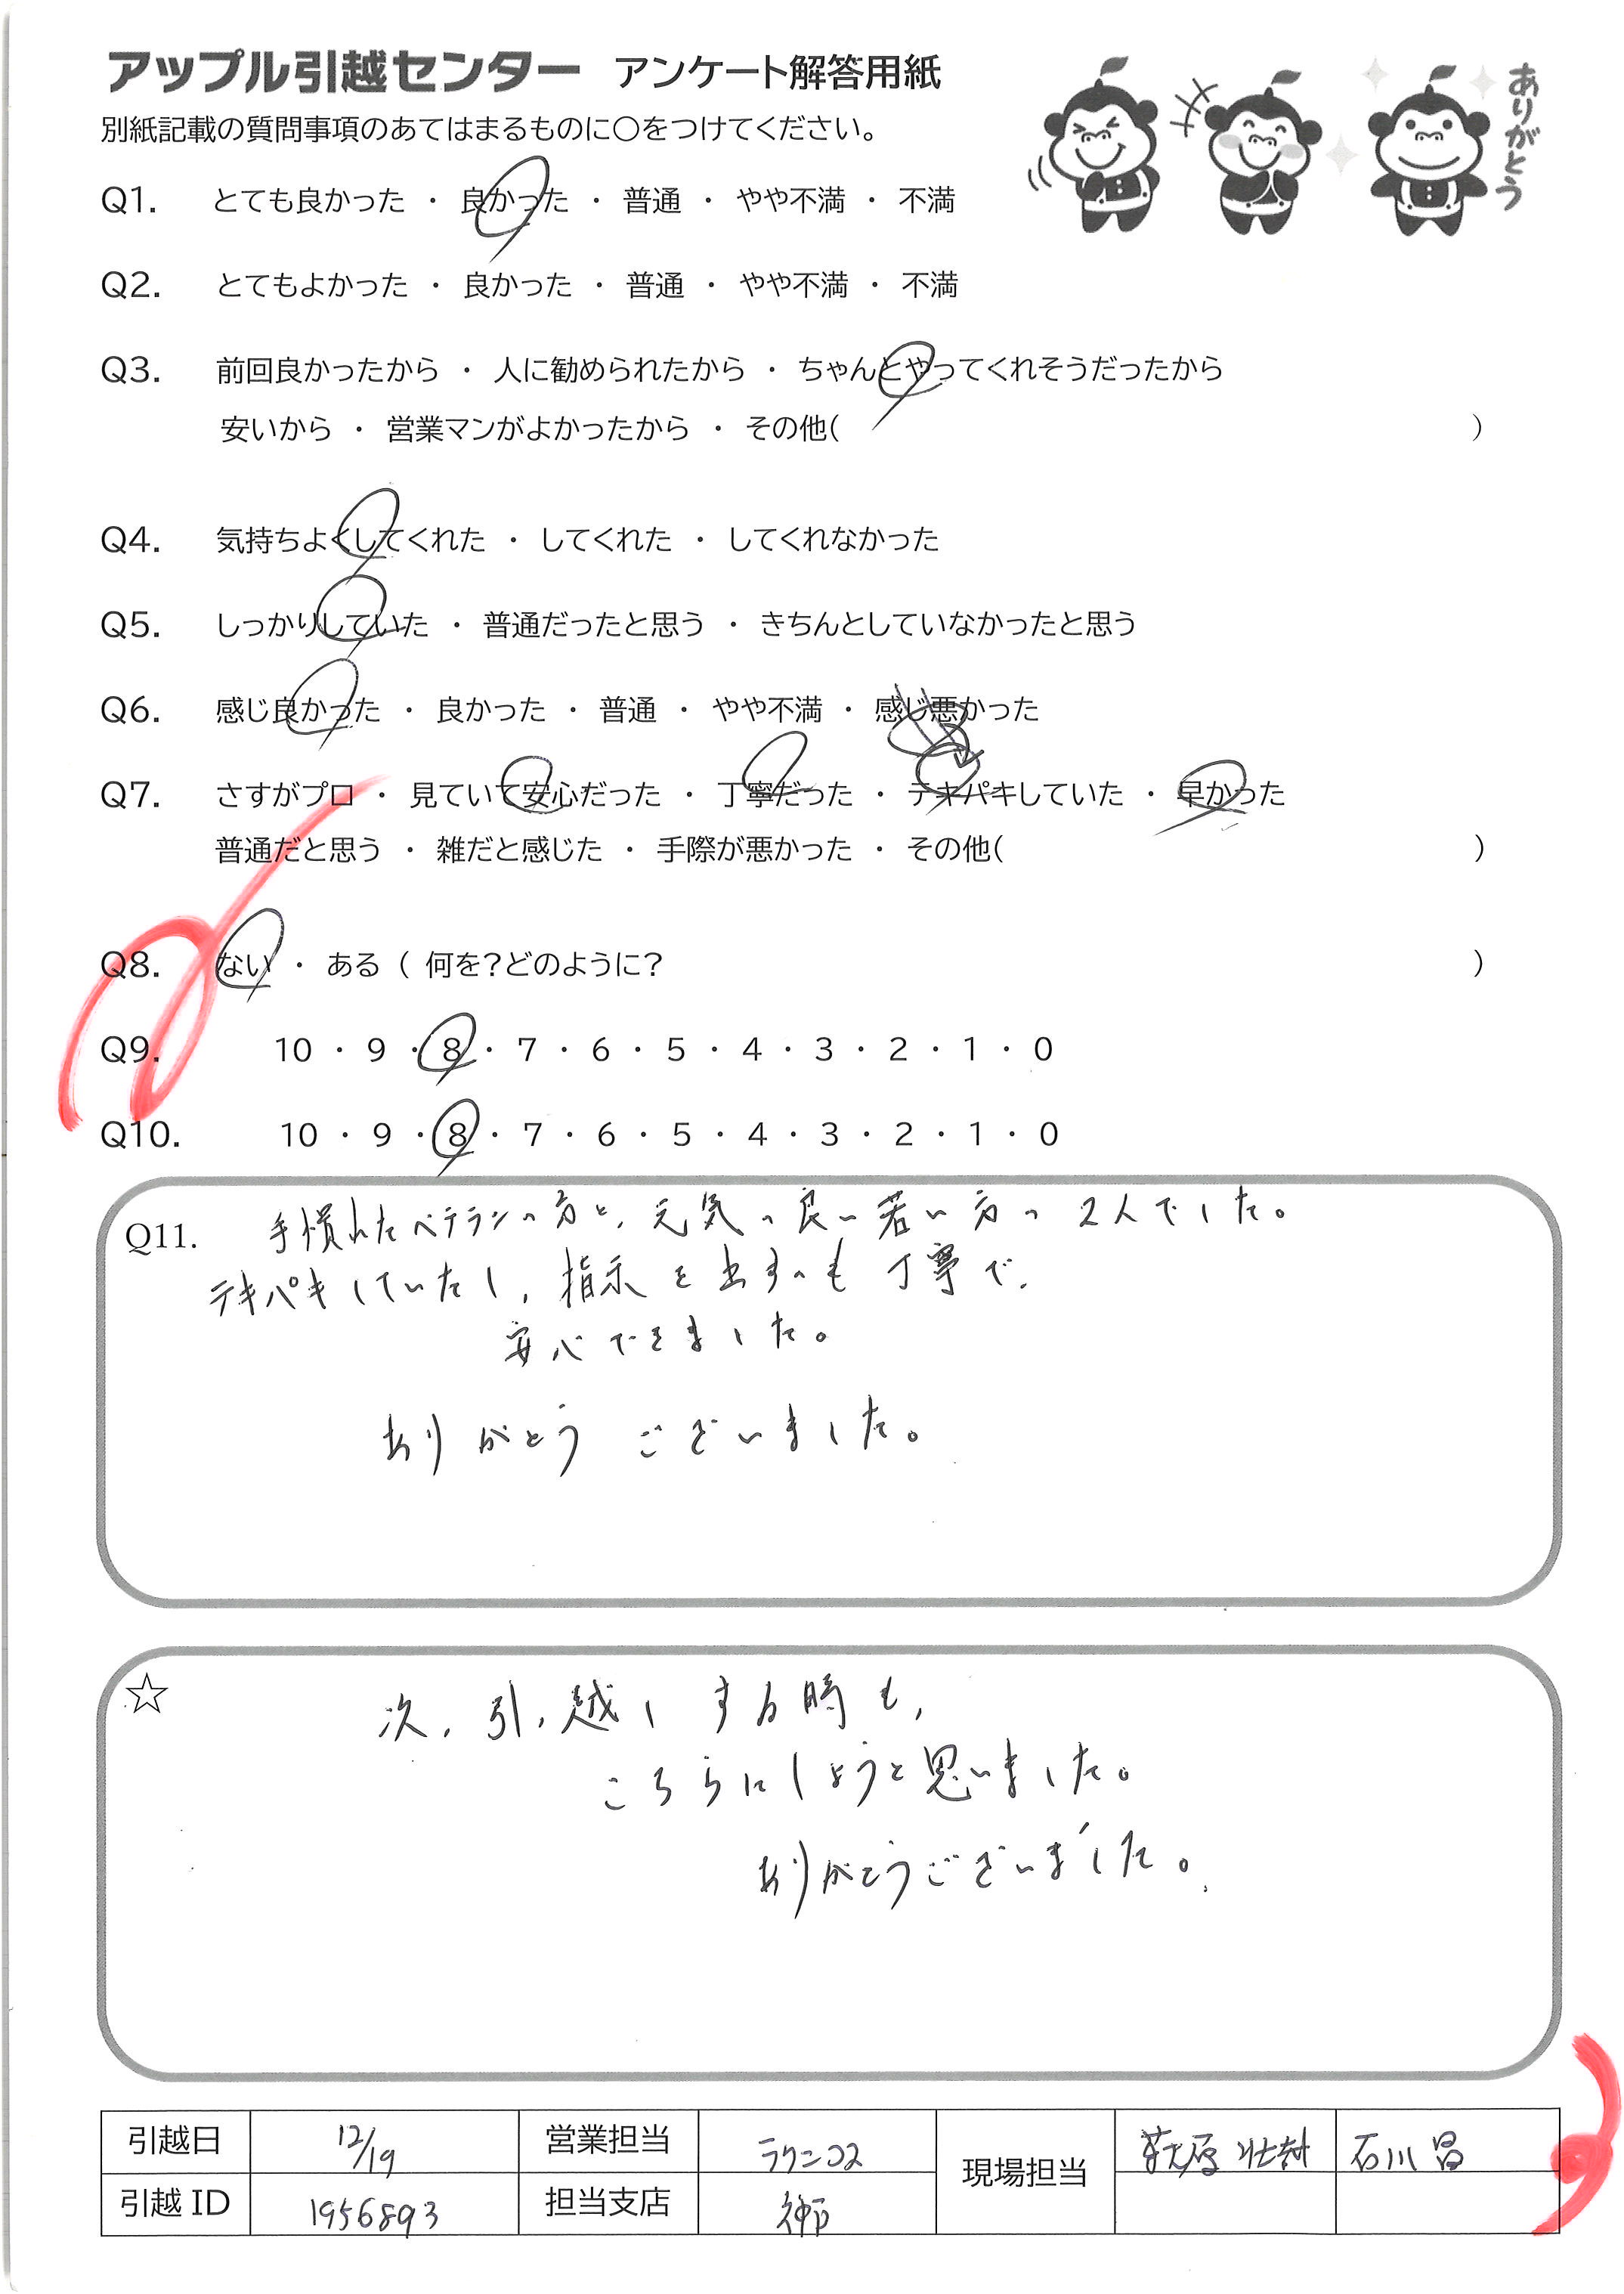 アップル引越センター アンケート解答用紙
ありがとう
別紙記載の質問事項のあてはまるものに○をつけてください。
Q1. とても良かった ・ 良かった ・ 普通 ・ やや不満 ・ 不満
Q2. とてもよかった ・ 良かった ・ 普通 ・ やや不満 ・ 不満
Q3. 前回良かったから ・ 人に勧められたから ・ ちゃんとやってくれそうだったから
安いから ・ 営業マンがよかったから ・ その他( )
Q4. 気持ちよくしてくれた ・ してくれた ・ してくれなかった
Q5. しっかりしていた ・ 普通だったと思う ・ きちんとしていなかったと思う
Q6. 感じ良かった ・ 良かった ・ 普通 ・ やや不満 ・ 感じ悪かった
Q7. さすがプロ ・ 見ていて安心だった ・ 丁寧だった ・ テキパキしていた ・ 早かった
普通だと思う ・ 雑だと感じた ・ 手際が悪かった ・ その他( )
Q8. ない ・ ある ( 何を?どのように? )
Q9. 10 ・ 9 ・ 8 ・ 7 ・ 6 ・ 5 ・ 4 ・ 3 ・ 2 ・ 1 ・ 0
Q10. 10 ・ 9 ・ 8 ・ 7 ・ 6 ・ 5 ・ 4 ・ 3 ・ 2 ・ 1 ・ 0
Q11. 手慣れたベテランの方と、元気の良い若い方の2人でした。
テキパキしていたし、指示を出すのも丁寧で、
安心できました。
ありがとうございました。
☆ 次、引っ越しする時も、
こちらにしようと思いました。
ありがとうございました。
引越日 12/19 営業担当 ラクニコス 現場担当 萩原 石川 昌
引越ID 1956893 担当支店 神戸